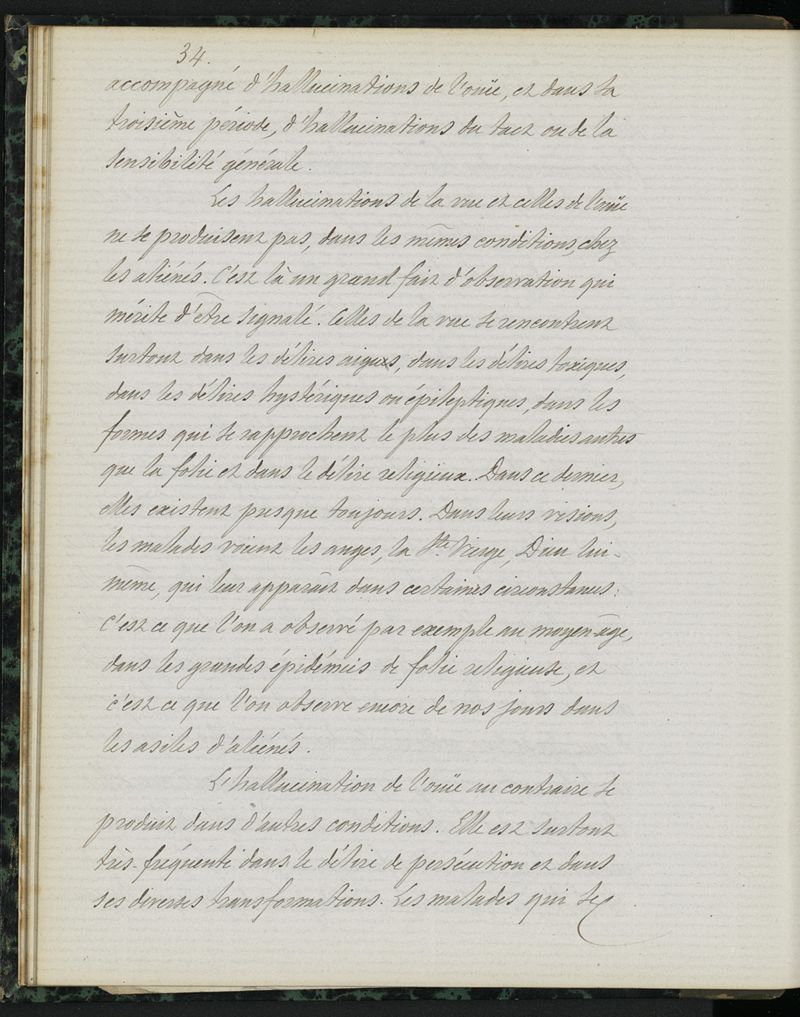 34.
accompagné d'hallucinations de l'ouïe, et dans la
troisième période, d'hallucinations du tact ou de la
sensibilité générale.
Les hallucinations de la vue et celles de l'ouïe
ne se produisent pas, dans les mêmes conditions, chez
les aliénés. C'est là un grand fait d'observation qui
mérite d'être signalé. Celles de la vue se rencontrent
surtout dans les délires aigus, dans les délires toxiques,
dans les délires hystériques ou épileptiques, dans les
formes qui se rapprochent le plus des maladies autres
que la folie et dans le délire religieux. Dans ce dernier,
elles existent presque toujours. Dans leurs visions,
les malades voient les anges, la Ste Vierge, Dieu lui-
même, qui leur apparaît dans certaines circonstances :
c'est ce que l'on a observé par exemple au moyen-âge,
dans les grandes épidémies de folie religieuse, et
c'est ce que l'on observe encore de nos jours dans
les asiles d'aliénés.
L'hallucination de l'ouïe au contraire se
produit dans d'autres conditions. Elle est surtout
très-fréquente dans le délire de persécution et dans
ses diverses transformations. Les malades qui se